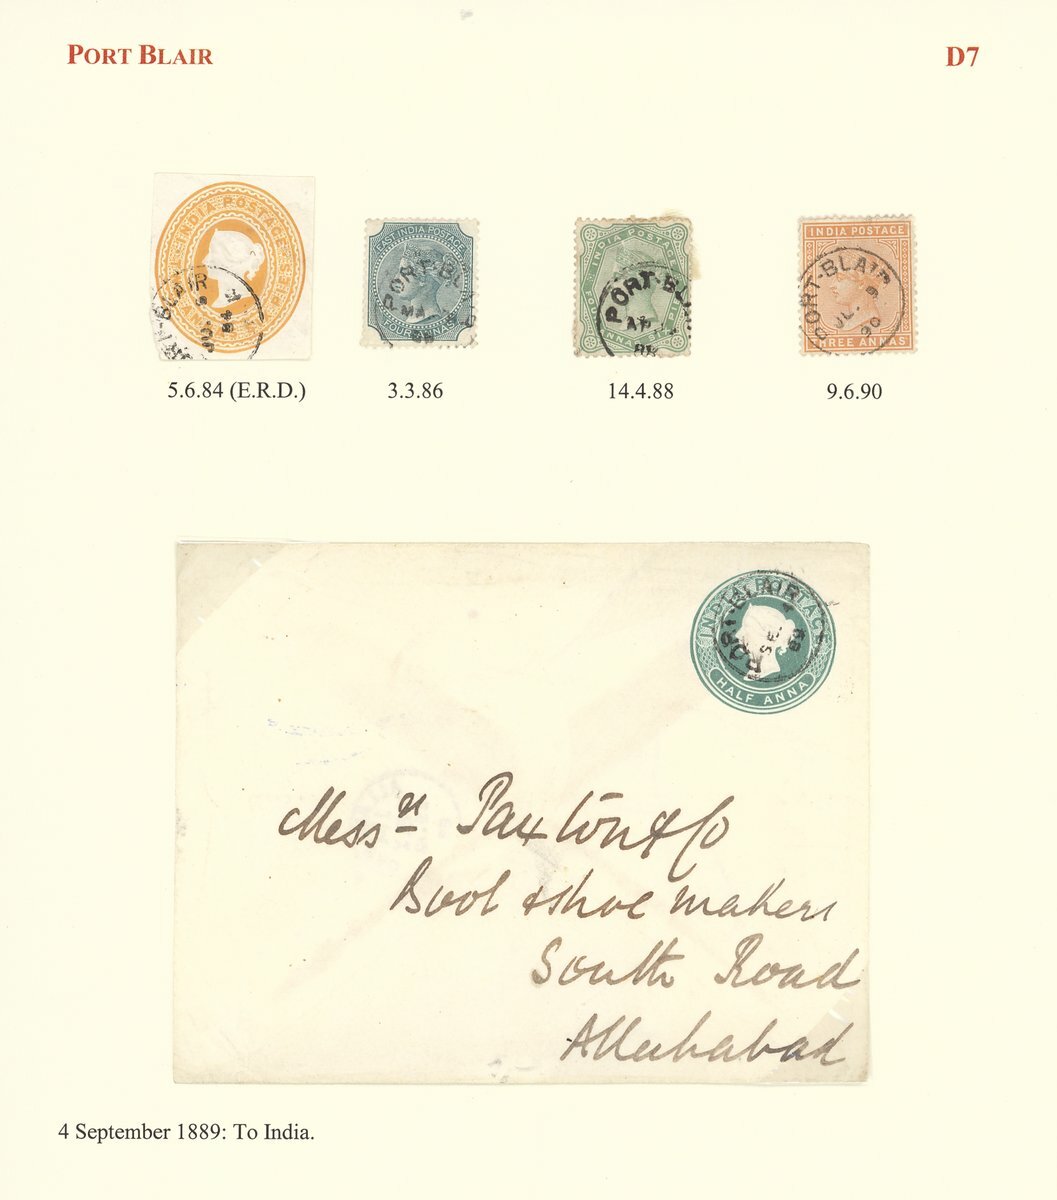 PORT BLAIR
D7
INDIA POSTAGE
PORT-BLAIR
EAST INDIA POSTAGE
FOUR ANNAS
PORT-BLAIR
MA
INDIA POSTAGE
PORT-BL
AP
88
INDIA POSTAGE
THREE ANNAS
PORT-BLAIR
9
JU
90
5.6.84 (E.R.D.)
3.3.86
14.4.88
9.6.90
HALF ANNA
PORT-BLAIR
SE 4
89
Messrs Paxton & Co
Boot & shoe makers
South Road
Allahabad
4 September 1889: To India.